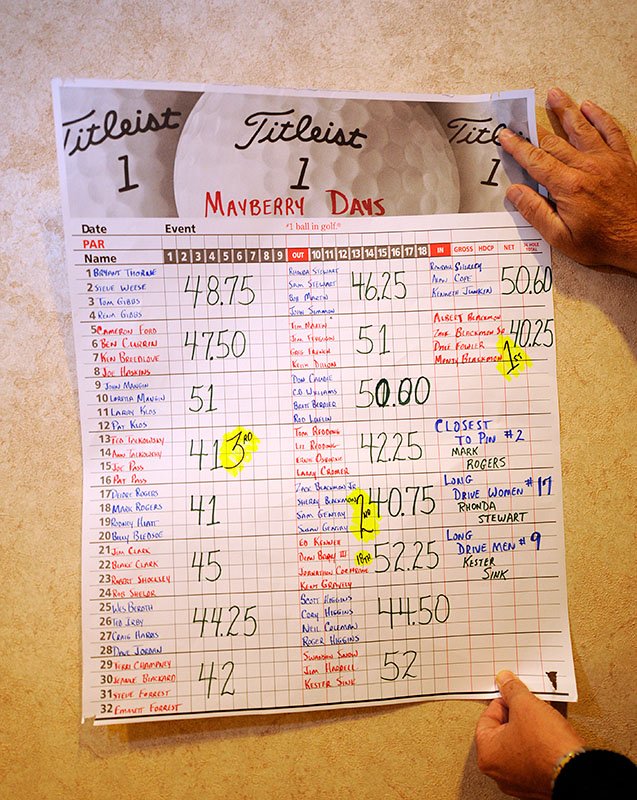 Titleist Titleist Titleist
1 1 1
MAYBERRY DAYS
Date Event "1 ball in golf."
PAR
Name 1 2 3 4 5 6 7 8 9 OUT 10 11 12 13 14 15 16 17 18 IN GROSS HDCP NET 36 HOLE TOTAL
1 BRYANT THORNE
2 STEVE WEESE
3 TOM GIBBS
4 RENA GIBBS
48.75
5 CAMERON FORD
6 BEN CURRIN
7 KEN BREEDLOVE
8 JOE HASKINS
47.50
9 JOHN MANGIN
10 LORETTA MANGIN
11 LARRY KLOS
12 PAT KLOS
51
13 TED
14 ANN
15 JOE PASS
16 PAT PASS
41 3RD
17 ROGERS
18 MARK ROGERS
19 RODNEY HIATT
20 BILLY BLEDSOE
41
21 JIM CLARK
22 BLAKE CLARK
23 SHOCKLEY
24 ROB SHELOR
45
25 WES BEROTH
26 TED IRBY
27 CRAIG HARRIS
28 DAVE JORDAN
44.25
29 CHAMPNEY
30 JEANNE BLACKARD
31 STEVE FORREST
32 EMMETT FORREST
42
RHONDA STEWART
SAM STEWART
BOB MARTIN
JOHN
46.25
TIM MAKEN
JIM
GREG FRENCH
KEITH DILLON
51
DON
C.D. WILLIAMS
BRETT
ROD
50.00
TOM REDDING
LIZ REDDING
ERNIE OSBORNE
LARRY CROMER
42.25
ZACK BLACKMON JR
SHERRY BLACKMON
SAM GENTRY
SUSAN GENTRY
2ND 40.75
ED KENNEY
DEAN III
JOHNATHON
KENT GRAVELY
18TH 52.25
SCOTT HIGGINS
CORY HIGGINS
NEIL COLEMAN
ROGER HIGGINS
44.50
SWANSON SNOW
JIM HARRELL
KESTER SINK
52
RONDAL
ALAN COPE
KENNETH JUNKIN
50.60
ALBERT BLACKMON
ZACK BLACKMON SR
DALE FOWLER
MONTY BLACKMON
40.25
1ST
CLOSEST
TO PIN #2
MARK
ROGERS
LONG
DRIVE WOMEN #17
RHONDA
STEWART
LONG
DRIVE MEN #9
KESTER
SINK